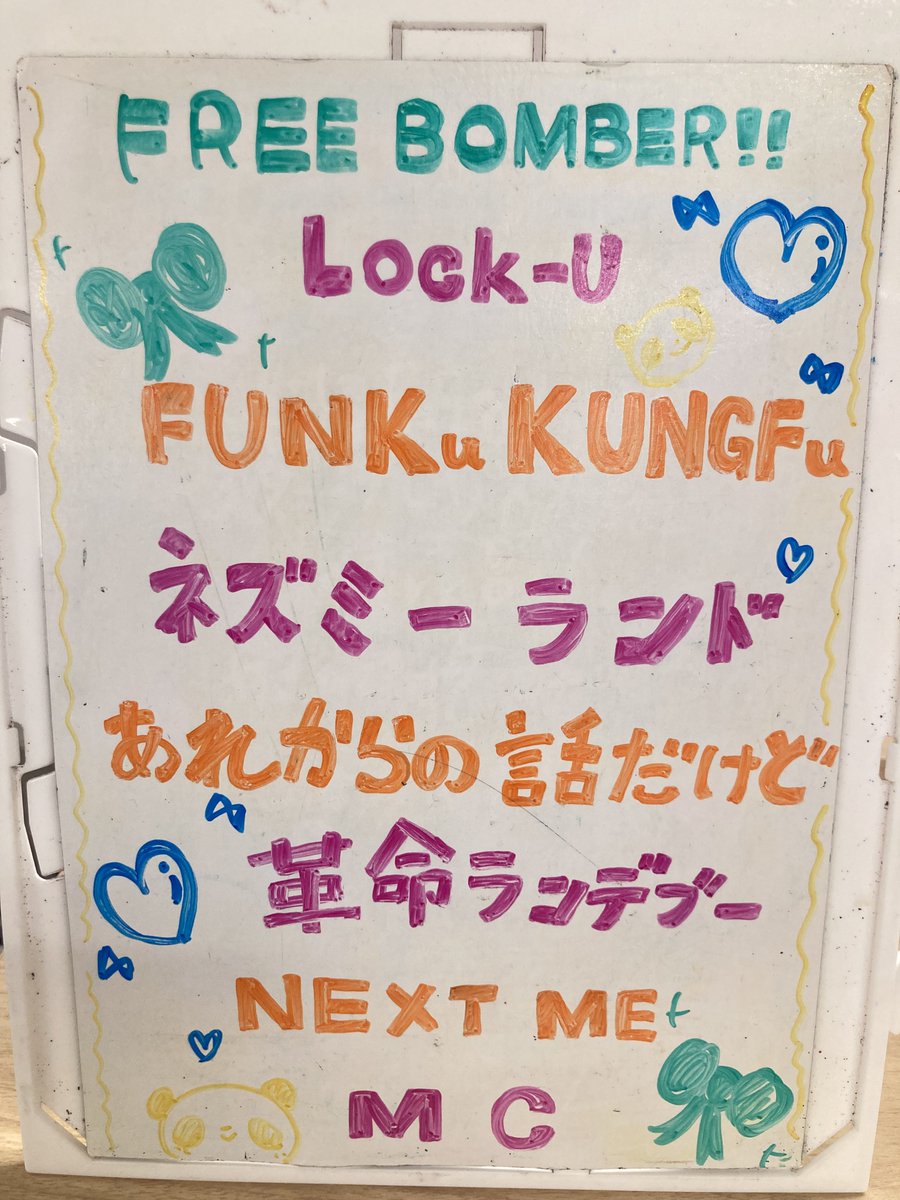 FREE BOMBER!!
Lock-U
FUNKu KUNGFu
ネズミーランド
あれからの話だけど
革命ランデブー
NEXT ME
MC